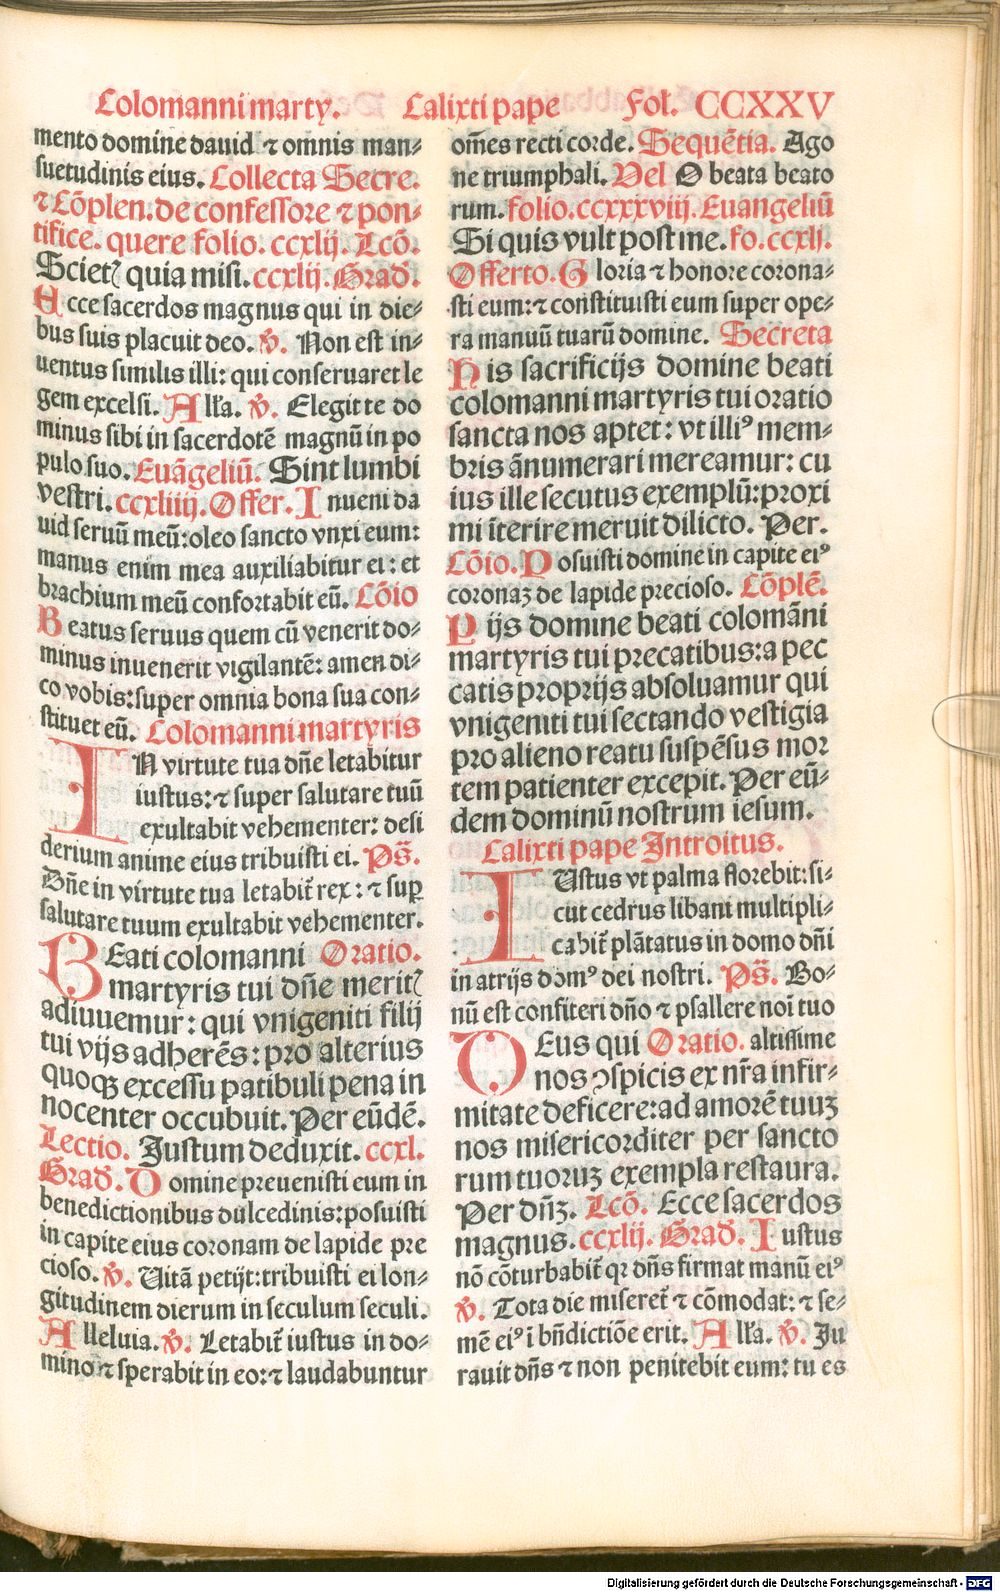 Colomanni marty. Calixti pape Fol. CCXXV
mento domine dauid ⁊ omnis man⸗
suetudinis eius. Collecta Secre.
⁊ Cõplen. de confessore ⁊ pon⸗
tifice. quere folio. ccxlij. Lcõ.
Scietꝭ quia misi. ccxlij. Grad.
Ecce sacerdos magnus qui in die⸗
bus suis placuit deo. ℣. Non est in⸗
uentus similis illi: qui conseruaret le
gem excelsi. Alľa. ℣. Elegit te do
minus sibi in sacerdotẽ magnũ in po
pulo suo. Euãgeliũ. Sint lumbi
vestri. ccxliiij. Offer. Inueni da
uid seruũ meũ: oleo sancto vnxi eum:
manus enim mea auxiliabitur ei: et
brachium meũ confortabit eũ. Cõio
Beatus seruus quem cũ venerit do⸗
minus inuenerit vigilantẽ: amen di⸗
co vobis: super omnia bona sua con⸗
stituet eũ. Colomanni martyris
IN virtute tua dñe letabitur
iustus: ⁊ super salutare tuũ
exultabit vehementer: desi
derium anime eius tribuisti ei. Ps̃.
Dñe in virtute tua letabit̃ rex: ⁊ suꝑ
salutare tuum exultabit vehementer.
BEati colomanni Oratio.
martyris tui dñe meritꝭ
adiuuemur: qui vnigeniti filij
tui vijs adherẽs: pro alterius
quoqꝫ excessu patibuli pena in
nocenter occubuit. Per eũdẽ.
Lectio. Iustum deduxit. ccxl.
Grad. Domine preuenisti eum in
benedictionibus dulcedinis: posuisti
in capite eius coronam de lapide pre
cioso. ℣. Uitã petijt: tribuisti ei lon⸗
gitudinem dierum in seculum seculi.
Alleluia. ℣. Letabit̃ iustus in do⸗
mino ⁊ sperabit in eo: ⁊ laudabuntur
om̃es recti corde. Sequẽtia. Ago
ne triumphali. Vel O beata beato
rum. folio. ccxxxviij. Euangeliũ
Si quis vult post me. fo. ccxlj.
Offerto. Gloria ⁊ honore corona⸗
sti eum: ⁊ constituisti eum super ope⸗
ra manuũ tuarũ domine. Secreta
His sacrificijs domine beati
colomanni martyris tui oratio
sancta nos aptet: vt illiꝰ mem⸗
bris ãnumerari mereamur: cu
ius ille secutus exemplũ: proxi
mi ĩterire meruit dilicto. Per.
Cõio. Posuisti domine in capite eiꝰ
coronaꝫ de lapide precioso. Cõplẽ.
Pijs domine beati colomãni
martyris tui precatibus: a pec
catis proprijs absoluamur qui
vnigeniti tui sectando vestigia
pro alieno reatu suspẽsus mor
tem patienter excepit. Per eũ⸗
dem dominũ nostrum iesum.
Calixti pape Introitus.
IUstus vt palma florebit: si⸗
cut cedrus libani multipli⸗
cabit̃ plãtatus in domo dñi
in atrijs domꝰ dei nostri. Ps̃. Bo⸗
nũ est confiteri dño ⁊ psallere noĩ tuo
DEus qui Oratio. altissime
nos ↄspicis ex nr̃a infir⸗
mitate deficere: ad amorẽ tuuꝫ
nos misericorditer per sancto
rum tuoruꝫ exempla restaura.
Per dñꝫ. Lcõ. Ecce sacerdos
magnus. ccxlij. Grad. Iustus
nõ cõturbabit̃ qꝛ dñs firmat manũ eiꝰ
℣. Tota die miseret̃ ⁊ cõmodat: ⁊ se⸗
mẽ eiꝰ ĩ bñdictiõe erit. Alľa. ℣. Iu
rauit dñs ⁊ non penitebit eum: tu es
Digitalisierung gefördert durch die Deutsche Forschungsgemeinschaft - DFG